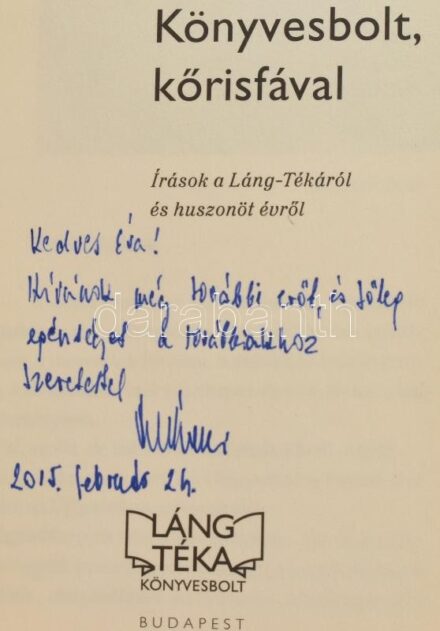 Könyvesbolt,
kőrisfával
Írások a Láng-Tékáról
és huszonöt évről
Kedves Éva!
Kívánok még további erőt, és főleg
egészséget a továbbiakhoz
Szeretettel
2015. február 24.
darabanth
LÁNG
TÉKA
KÖNYVESBOLT
BUDAPEST